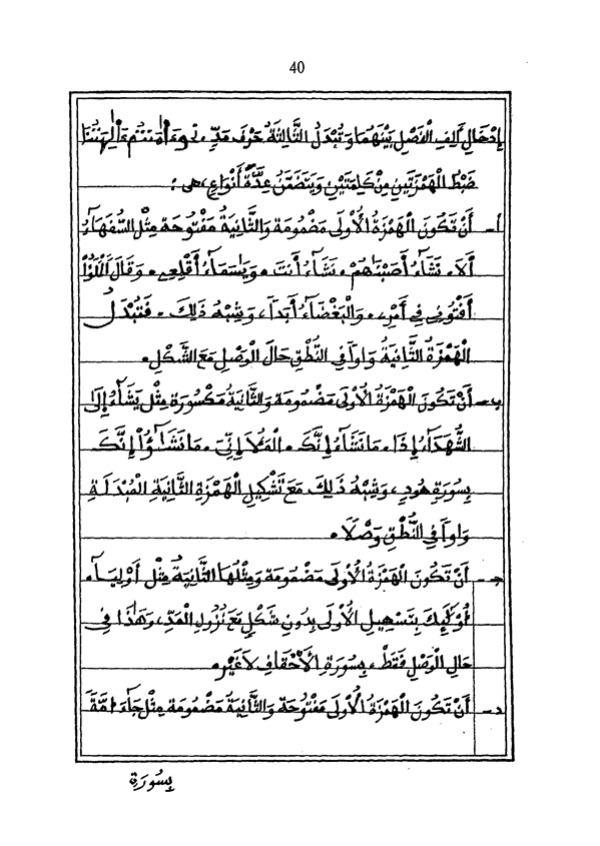 40
إِدْخَالِ أَلِفِ الْفَصْلِ بَيْنَهُمَا وَتُبْدَلُ الثَّالِثَةُ حَرْفَ مَدٍّ، نحو ءَأَٰمَنتُم ءَأَٰلِهَتُنَا
ضَبْطُ الْهَمْزَتَيْنِ مِنْ كَلِمَتَيْنِ وَيَتَضَمَّنُ عِدَّةَ أَنْوَاعٍ، هى :
أ - أَنْ تَكُونَ الْهَمْزَةُ الْأُولَى مَضْمُومَةً وَالثَّانِيَةُ مَفْتُوحَةً مِثْلُ السُّفَهَآءُ
أَلَا . نَشَآءُ أَصَبْنَٰهُمْ . نَشَآءُ أَنتَ . وَيَٰسَمَآءُ أَقْلِعِى . وَقَالَ الْمَلَؤُا
أَفْتُونِى فِى أَمْرِى . وَالْبَغْضَآءُ أَبَداً ، وَشِبْهُ ذَلِكَ . فَتُبْدَلُ
الْهَمْزَةُ الثَّانِيَةُ وَاواً فِى النُّطْقِ حَالَ الْوَصْلِ مَعَ الشَّكْلِ .
ب - أَنْ تَكُونَ الْهَمْزَةُ الْأُولَى مَضْمُومَةً وَالثَّانِيَةُ مَكْسُورَةً مِثْلُ يَشَآءُ إِلَىٰ
الشُّهَدَآءُ إِذَا . مَا نَشَآءُ إِنَّكَ . الْمَلَأُ إِنِّىَ . مَا نَشَٰٓؤُاْ إِنَّكَ
بِسُورَةِ هُودٍ ، وَشِبْهُ ذَلِكَ مَعَ تَشْكِيلِ الْهَمْزَةِ الثَّانِيَةِ الْمُبْدَلَةِ
وَاواً فِى النُّطْقِ وَصْلًا .
جـ - أَنْ تَكُونَ الْهَمْزَةُ الْأُولَى مَضْمُومَةً وَمِثْلُهَا الثَّانِيَةُ مِثْلُ أَوْلِيَآءُ .
أُوْلَٰٓئِكَ بِتَسْهِيلِ الْأُولَى بِدُونِ شَكْلٍ مَعَ نُزُولِ الْمَدِّ ، وَهَٰذَا فِى
حَالِ الْوَصْلِ فَقَطْ ، بِسُورَةِ الْأَحْقَافِ لَا غَيْرُ .
د - أَنْ تَكُونَ الْهَمْزَةُ الْأُولَى مَفْتُوحَةً وَالثَّانِيَةُ مَضْمُومَةً مِثْلُ جَآءَ امَّةً
بِسُورَةِ